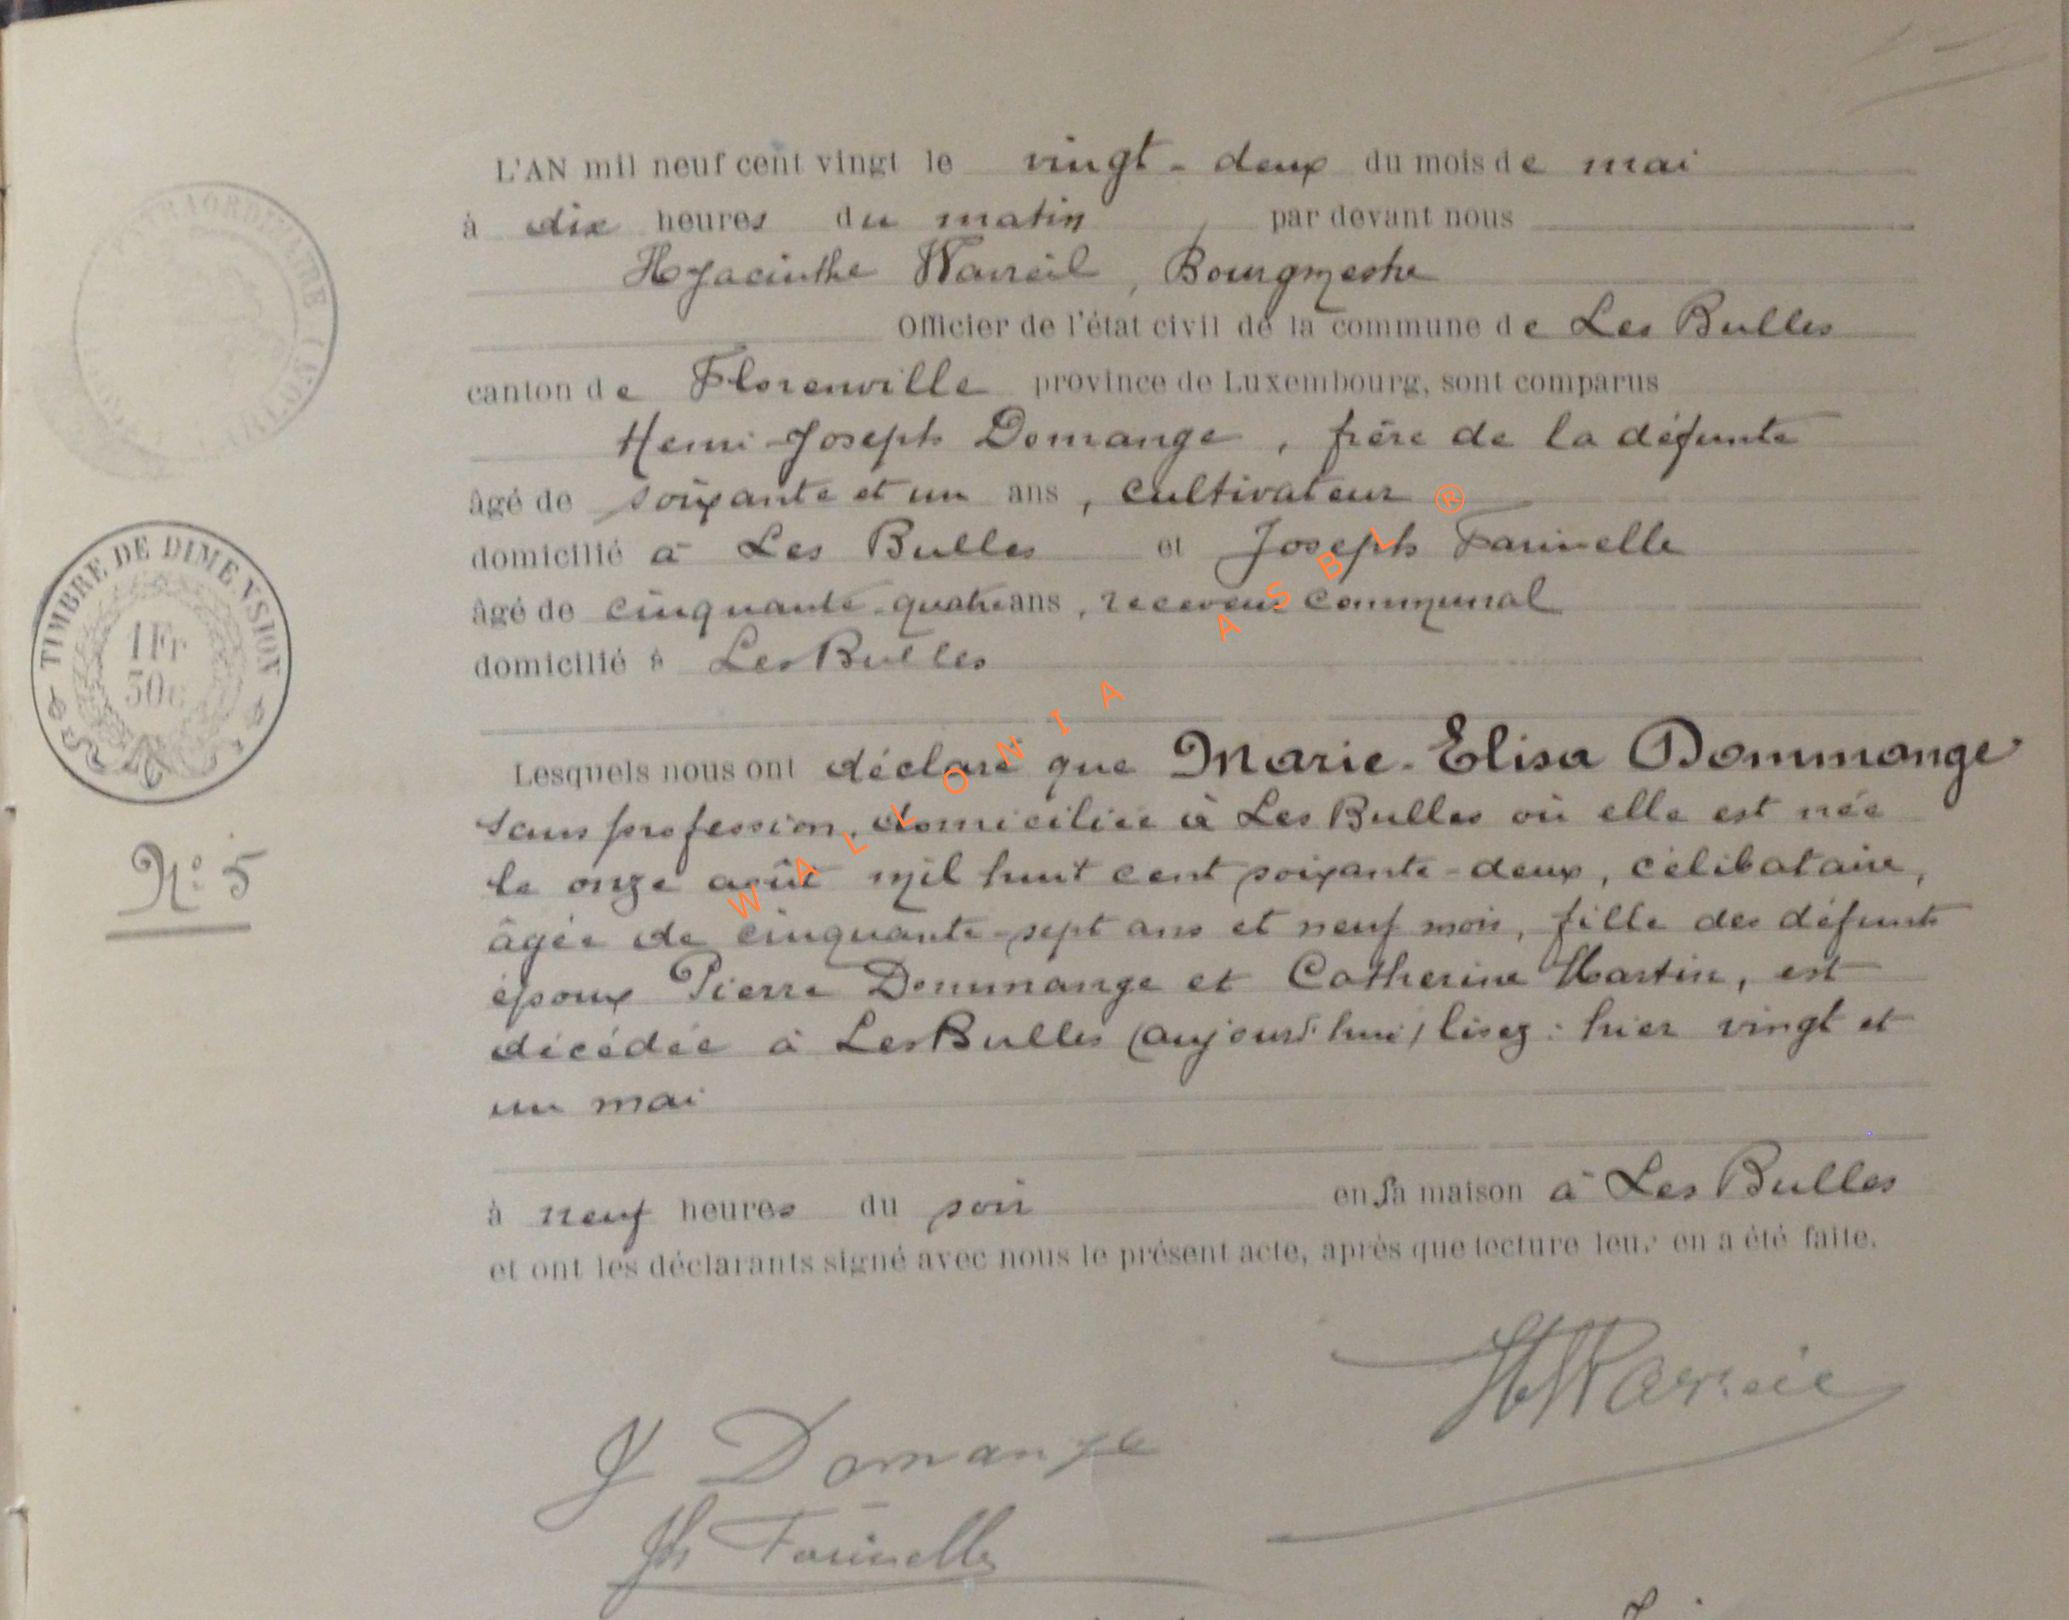 L'AN mil neuf cent vingt le vingt-deux du mois de mai
à dix heures du matin, par devant nous
Hyacinthe Warreil, Bourgmestre
Officier de l'état civil de la commune de Les Bulles
canton de Florenville province de Luxembourg, sont comparus
Henri-Joseph Domange, frère de la défunte
âgé de soixante et un ans, cultivateur
domicilié à Les Bulles et Joseph Farinelle
âgé de cinquante-quatre ans, receveur communal
domicilié à Les Bulles
Lesquels nous ont déclaré que Marie-Elisa Dommange
sans profession, domiciliée à Les Bulles où elle est née
le onze août mil huit cent soixante-deux, célibataire,
âgée de cinquante-sept ans et neuf mois, fille des défunts
époux Pierre Dommange et Catherine Martin, est
décédée à Les Bulles (aujourd'hui) lisez : hier vingt et
un mai
à neuf heures du soir en sa maison à Les Bulles
et ont les déclarants signé avec nous le présent acte, après que lecture leur en a été faite.
J Domange
Jh Farinelle
TIMBRE DE DIMENSION
1Fr
50c
N° 5
WALLONIA ASBL ®